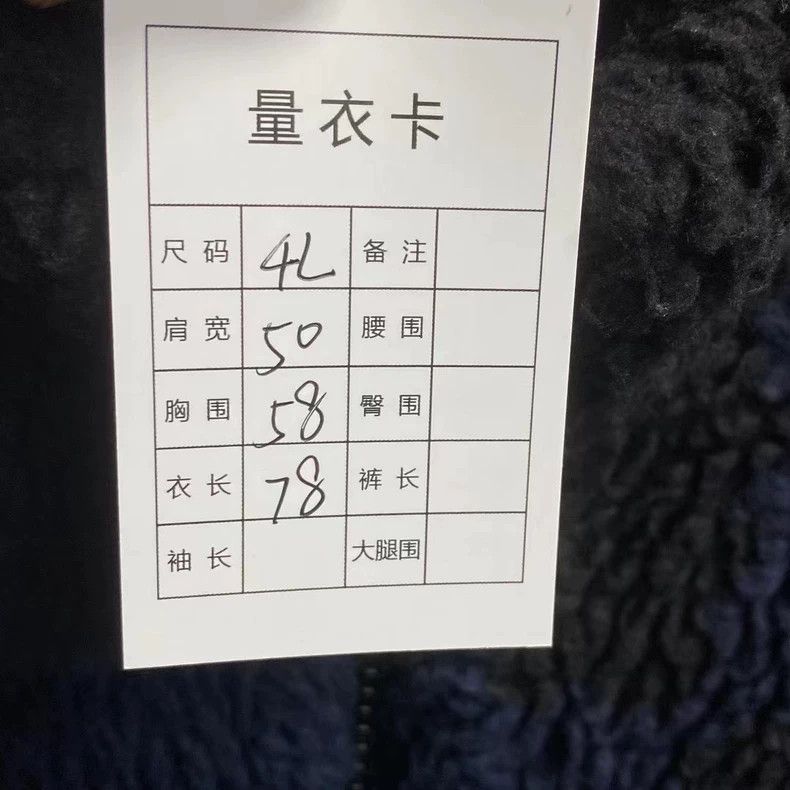 量衣卡
尺码 4L 备注
肩宽 50 腰围
胸围 58 臀围
衣长 78 裤长
袖长 大腿围